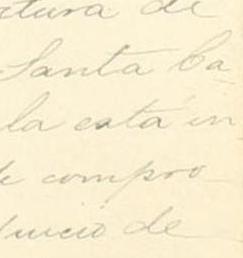 ctura de
Santa Ca
la está in
de compro
juicio de